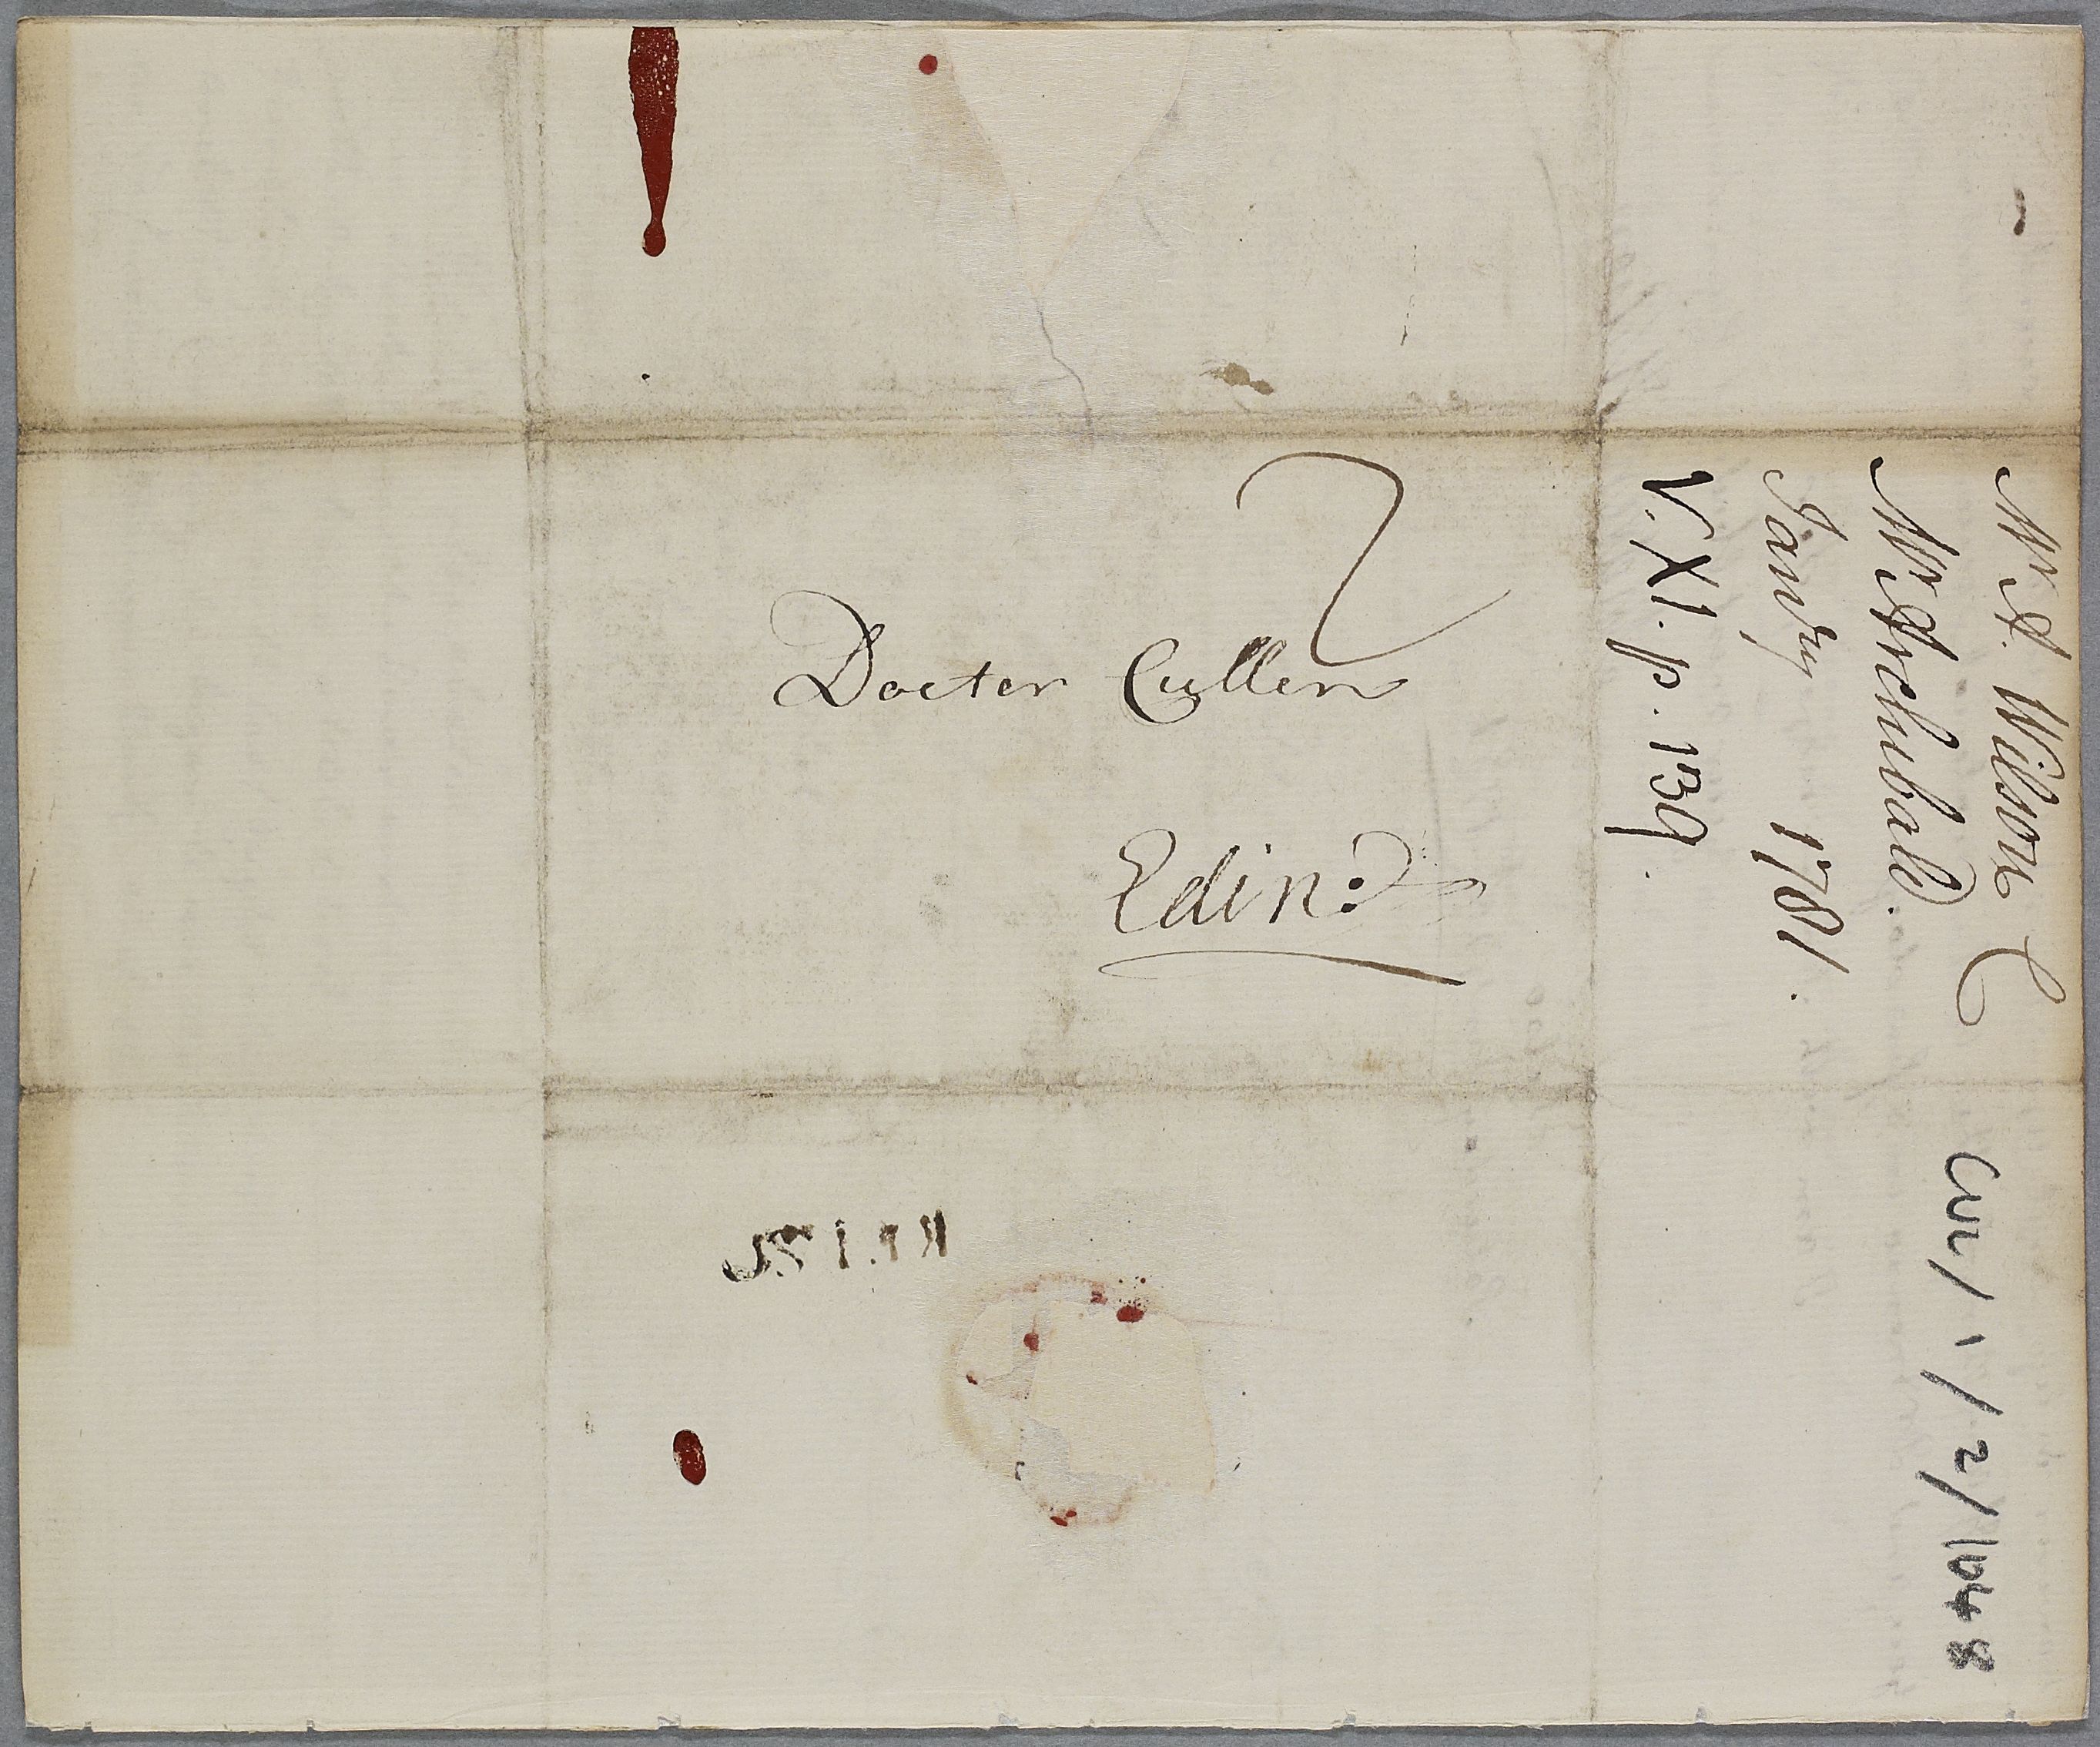 2
Doctor Cullen
Edinr:
Mr. A. Wilson C
Mr Archibald.
Janry 1781.
V. XI. p. 139.
CUL/1/2/1048